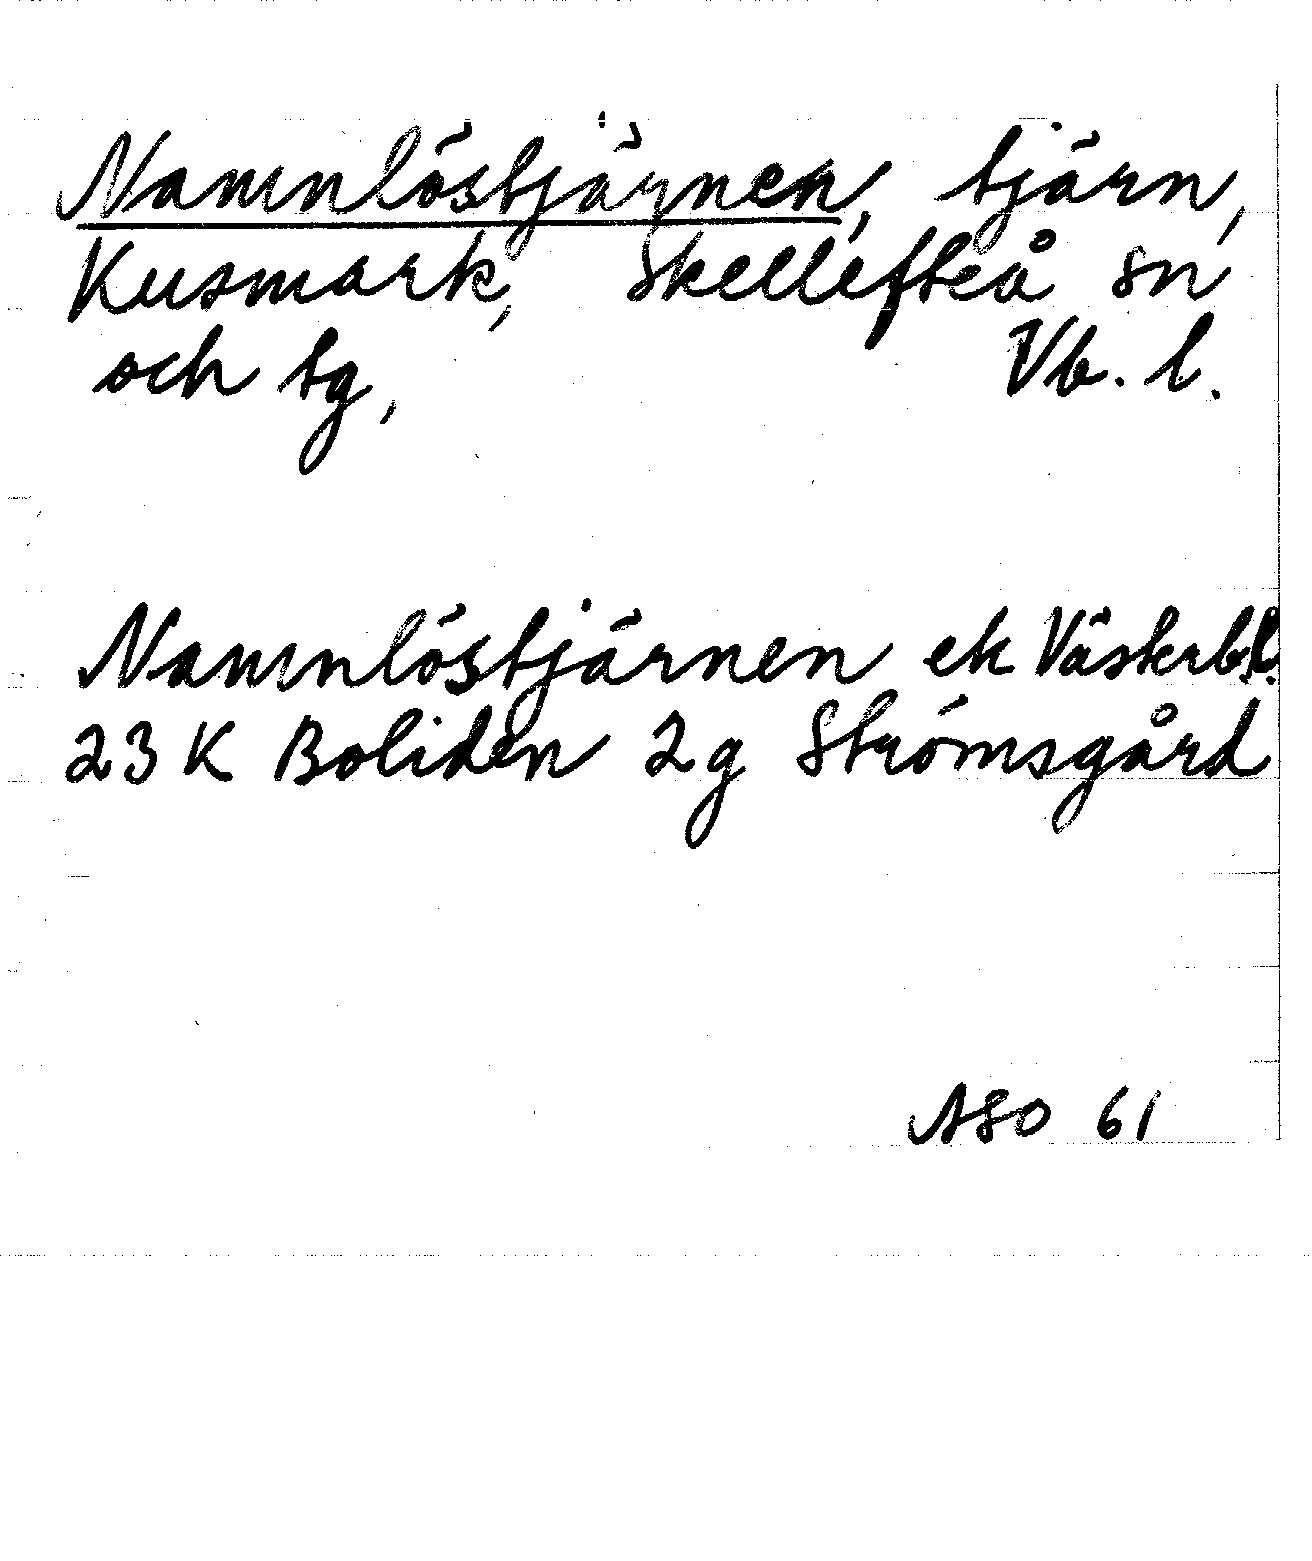 Namnlöstjärnen, tjärn,
Kusmark, Skellefteå sn
och tg, Vb. l.
Namnlöstjärnen ek Västerb.l.
23 K Boliden 2g Strömsgård
ASO 61